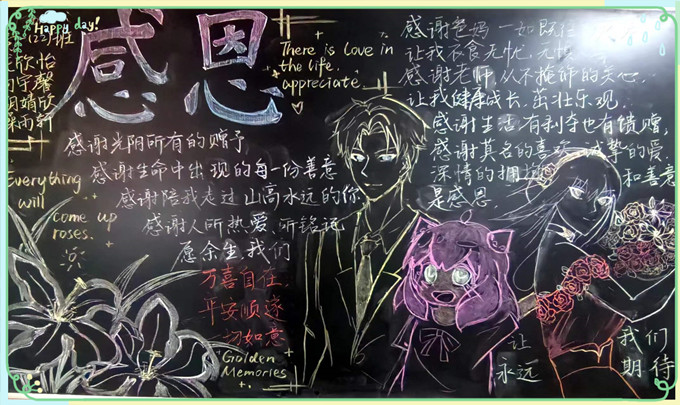 Happy day!
感恩
(22)班
There is Love in
the life,
appreciate.
感谢光阴所有的赠予
感谢生命中出现的每一份善意
感谢陪我走过山高水远的你
感谢人所热爱,所铭记
愿余生我们
万喜自在,
平安顺遂
切如意
Everything
will
come up
roses.
Golden
Memories
感谢爸妈 如既往
让我衣食无忧,无
感谢老师,从不推诿的关心,
让我健康成长,茁壮乐观,
感谢生活,有剥夺也有馈赠,
感谢莫名的喜欢 诚挚的爱
深情的拥抱 和善意
是感恩
让 我们
永远 期待